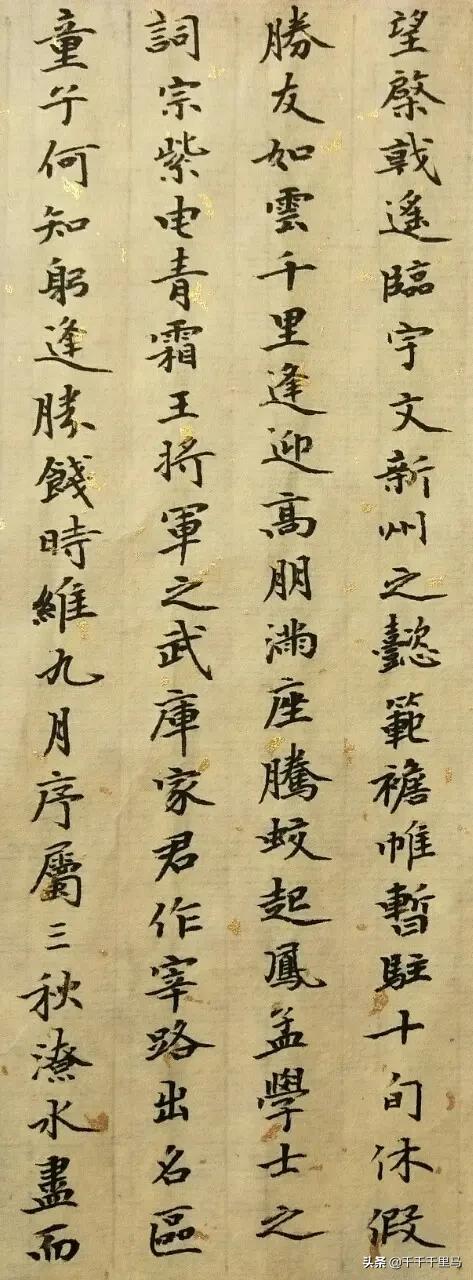 望棨戟遙臨宇文新州之懿範襜帷暫駐十旬休假
勝友如雲千里逢迎高朋滿座騰蛟起鳳孟學士之
詞宗紫电青霜王將軍之武庫家君作宰路出名區
童子何知躬逢勝餞時維九月序屬三秋潦水盡而
头条 @千千千里马